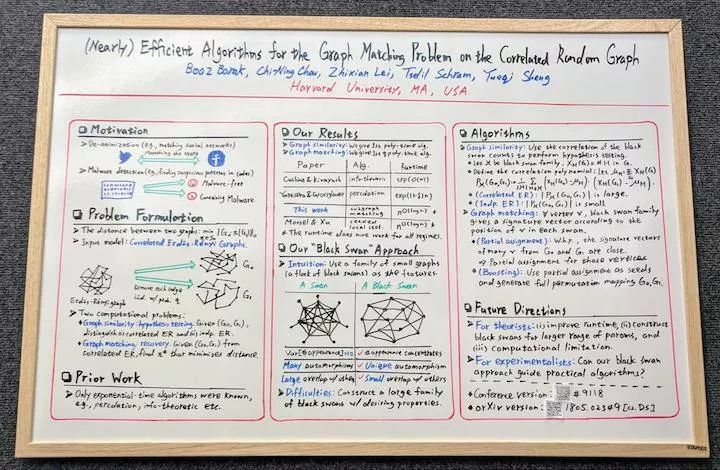 (Nearly) Efficient Algorithms for the Graph Matching Problem on the Correlated Random Graph
Boaz Barak, Chi-Ning Chou, Zhixian Lei, Tselil Schramm, Yueqi Sheng
Harvard University, MA, USA
Motivation
De-anonimization (e.g., matching social networks)
Matching the users
Malware detection (e.g., finding suspicious patterns in codes)
Malware-free
Containing Malware
Problem Formulation
The distance between two graphs: min ||G₀-π(G₁)||
Input model: Correlated Erdős-Rényi Graphs.
G₀
Erdős-Rényi graph
remove each edge
i.i.d. w.p.
G₁
Two computational problems:
Graph similarity: hypothesis testing. Given (G₀,G₁),
distinguish correlated ER and indep. ER.
Graph matching: recovery. Given (G₀,G₁) from
correlated ER, find π* that minimizes distance.
Prior Work
Only exponential-time algorithms were known,
e.g., percolation, info-theoretic etc.
Our Results
Graph similarity: We give 1st poly-time alg.
Graph matching: We give 1st q.poly-time alg.
Paper Alg. Runtime
Cullina & Kivayash info-theoretic exp(O(n))
Yartseva & Grossglauser percolation
This work subgraph matching
Mossel & Xu seeded local stat.
* The runtime does not work for all regimes.
Our "Black Swan" Approach
Intuition: Use a family of small graphs
(a flock of black swans) as the features.
A Swan A Black Swan
Var[#appearance] # appearance concentrates
Many automorphism Unique automorphism
Large overlap w/ others Small overlap w/ others
Difficulties: Construct a large family
of black swans w/ desiring properties.
Algorithms
Graph similarity: Use the correlation of the black
swan counts to perform hypothesis testing.
Let H be black swan family, X_H(G) = # H in G.
Define the correlation polynomial:
(Correlated ER): |P_H(G₀,G₁)| is large.
(Indp. ER): |P_H(G₀,G₁)| is small.
Graph matching: ∀ vertex v, black swan family
gives a signature vector according to the
position of v in each swan.
(Partial assignment): W.h.p., the signature vectors
of many v from G₀ and G₁ are close.
⇒ Partial assignment for those vertices
(Boosting): Use partial assignment as seeds
and generate full permutation mapping G₀,G₁.
Future Directions
For theorists: (i) improve runtime, (ii) construct
black swans for larger range of params, and
(iii) computational limitation.
For experimentalists: Can our black swan
approach guide practical algorithms?
Conference version: #9118
arXiv version: 1805.02349 [cs.DS]
STAPLES